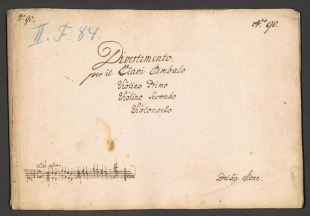 No. 90.
II. F. 84.
Divertimento.
per il Clavi Cembalo
Violino Primo
Violino Secondo
Violoncello
Del Sig.